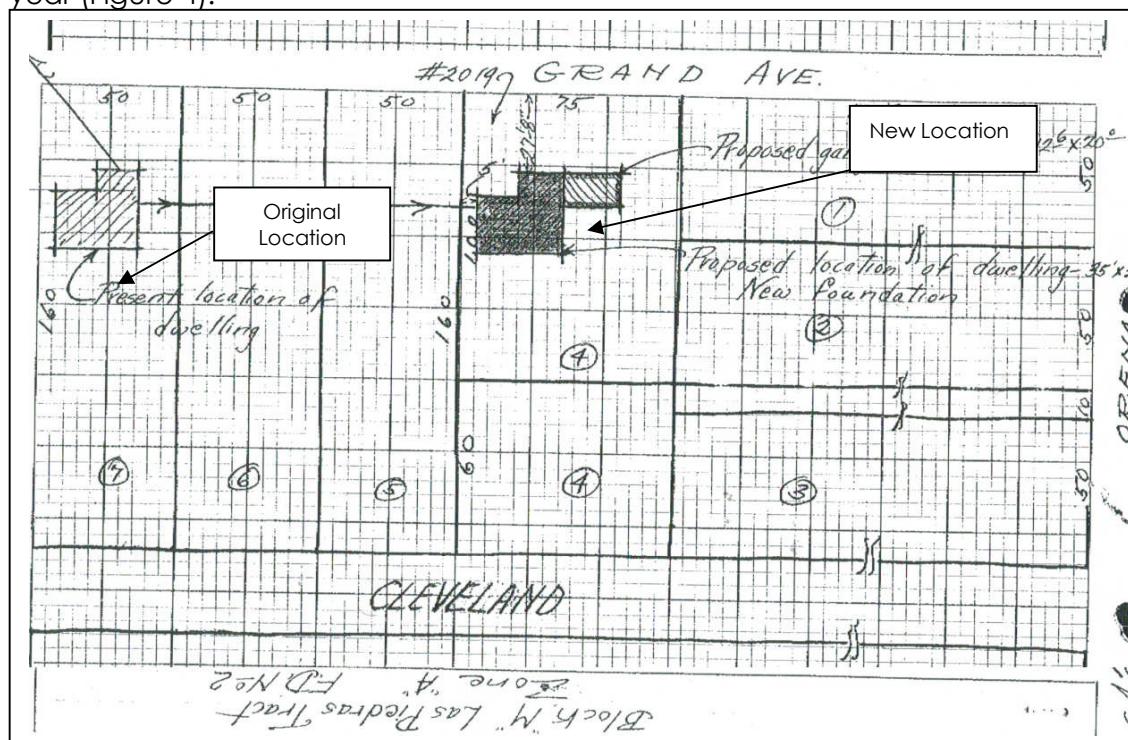 year (Figure 4).
#2019 GRAND AVE.
50 50 50 75
27'-8"
New Location
Proposed
50
5'
Original
Location
①
Present location of
dwelling
Proposed location of dwelling-
New foundation
160
160
②
50
④
10
60
⑦ ⑥ ⑤ ④ ③
50
CLEVELAND
Block "M" Las Piedras Tract
Zone "A" F.D. No 2